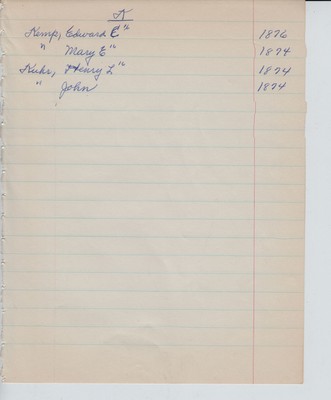 K
Kemp, Edward C" 1876
" Mary E" 1874
Kuhr, Henry L" 1874
" John 1874